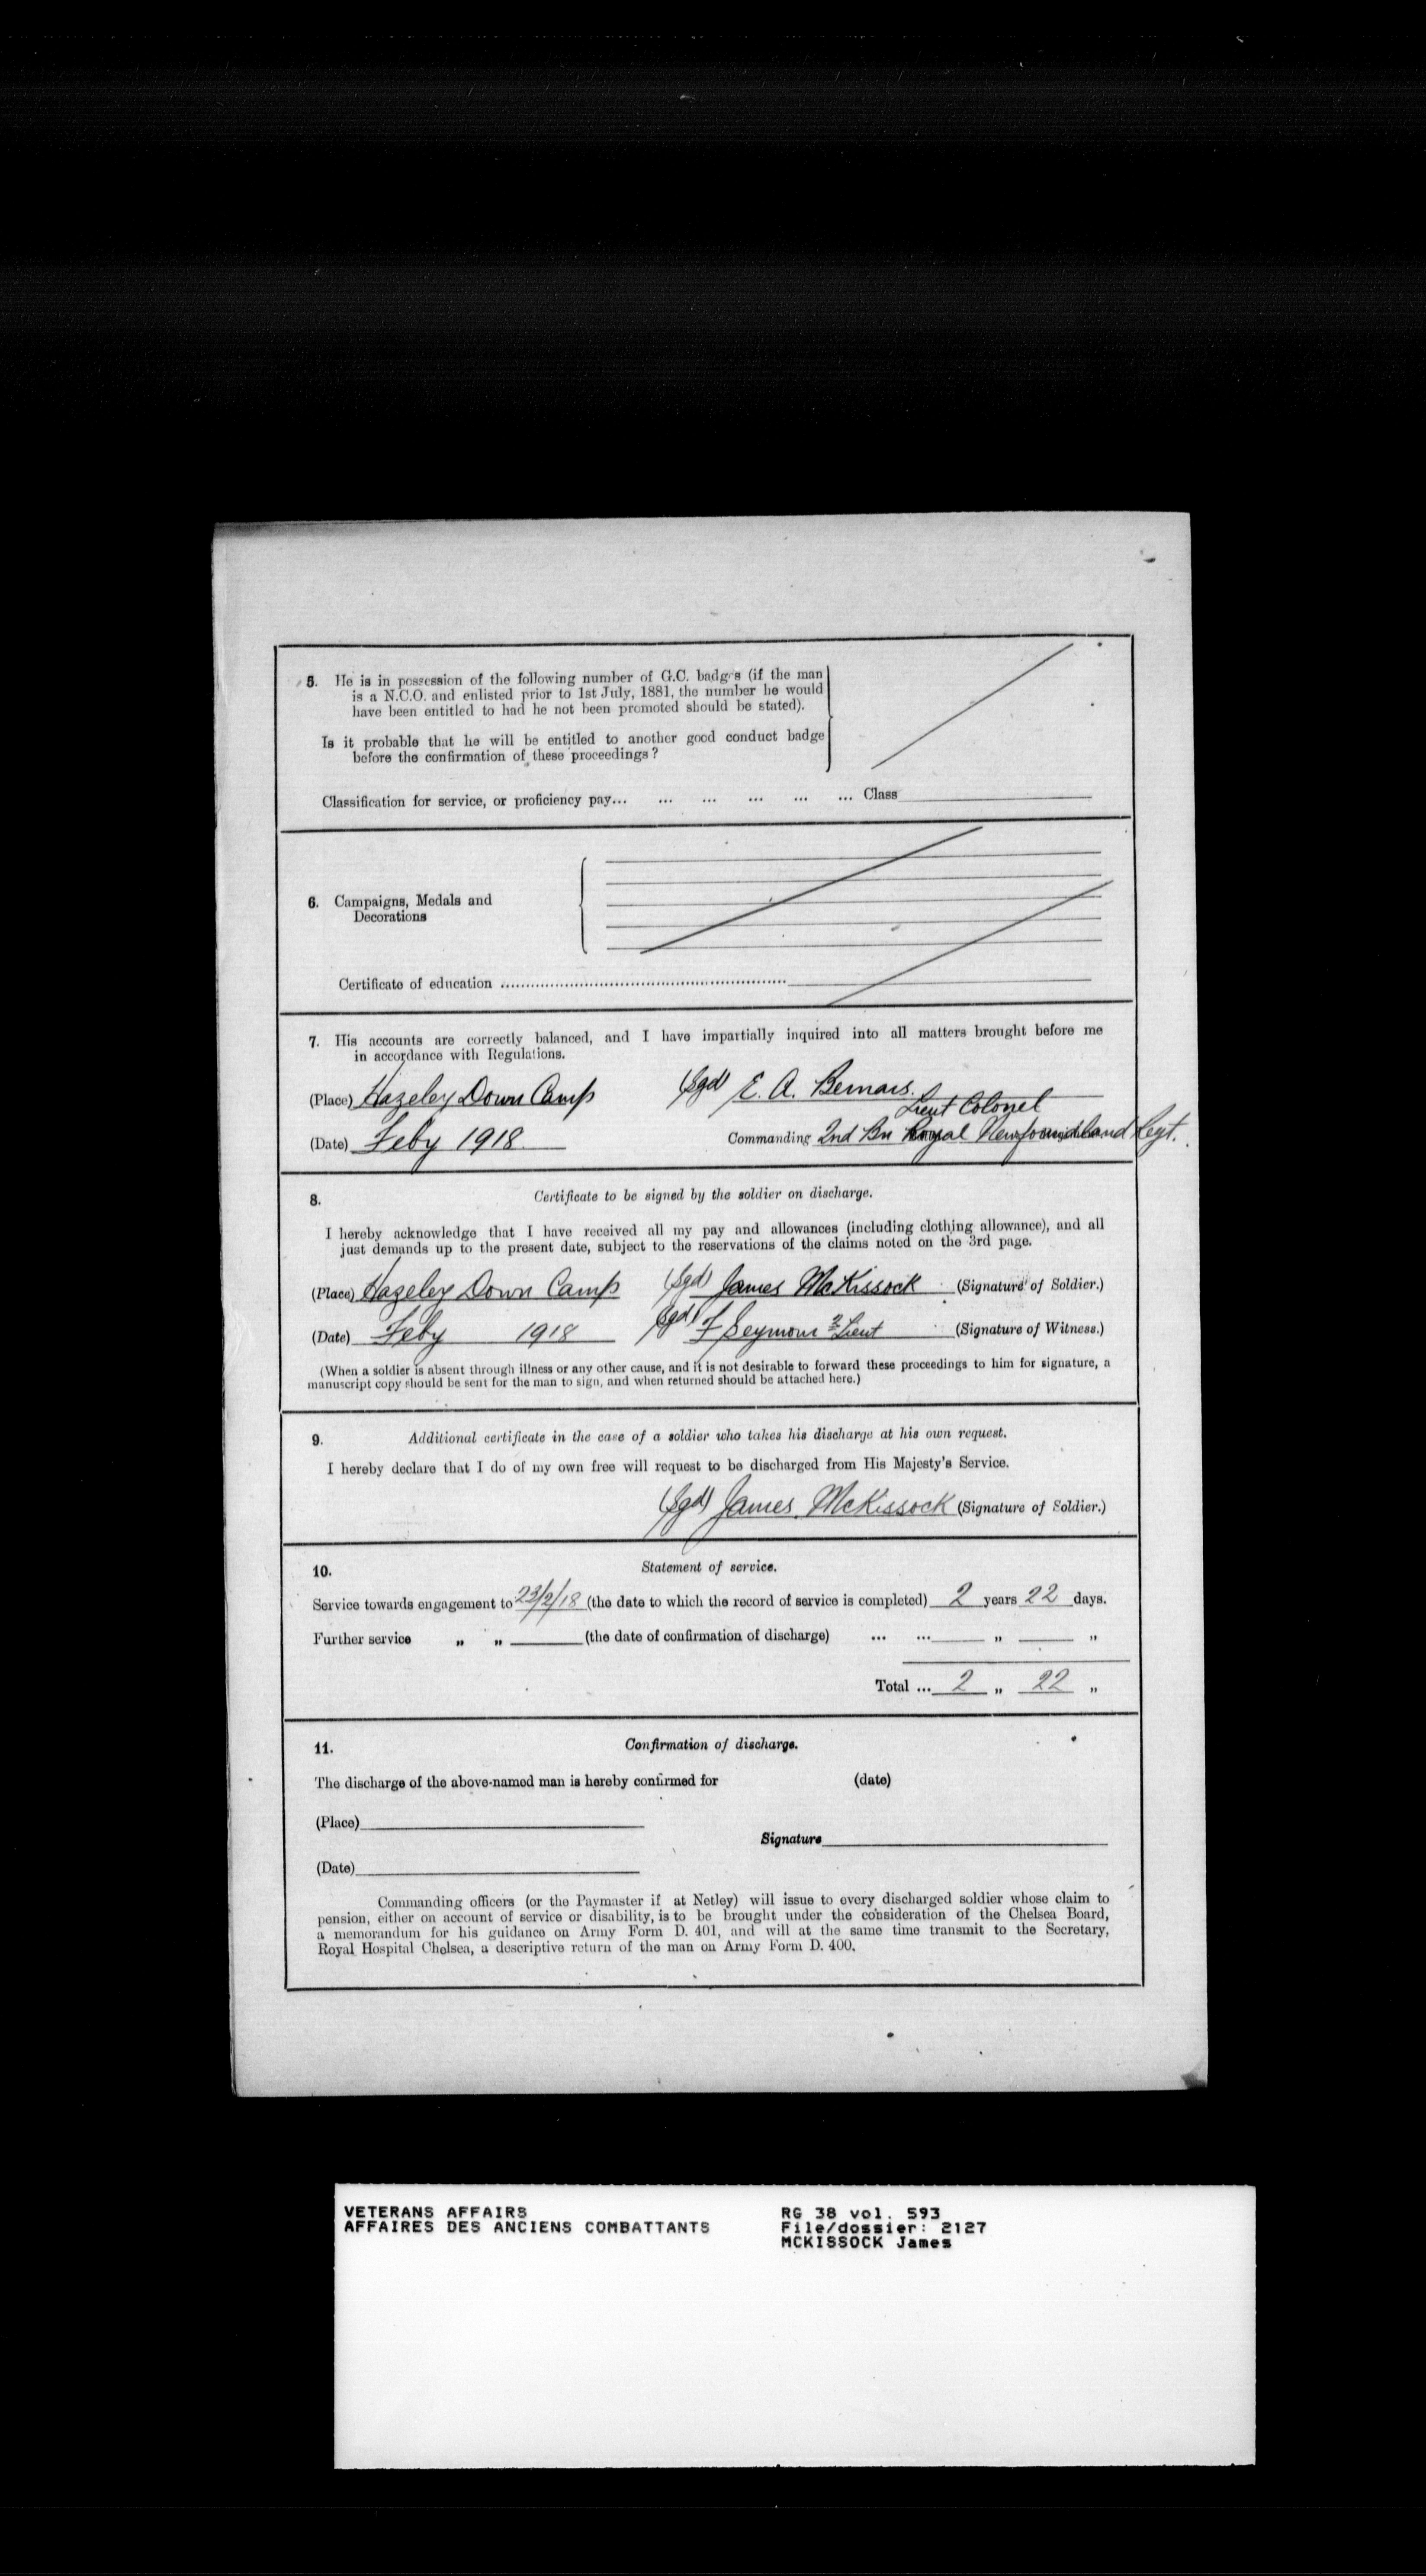 5. He is in possession of the following number of G.C. badges (if the man
is a N.C.O. and enlisted prior to 1st July, 1881, the number he would
have been entitled to had he not been promoted should be stated).
Is it probable that he will be entitled to another good conduct badge
before the confirmation of these proceedings?
Classification for service, or proficiency pay... ... ... ... ... ... Class
6. Campaigns, Medals and
Decorations
Certificate of education
7. His accounts are correctly balanced, and I have impartially inquired into all matters brought before me
in accordance with Regulations.
(Place) Hazeley Down Camp (Sgd) E. A. Bernars.
Lieut Colonel
(Date) Feby 1918 Commanding 2nd Bn Royal Newfoundland Regt.
8. Certificate to be signed by the soldier on discharge.
I hereby acknowledge that I have received all my pay and allowances (including clothing allowance), and all
just demands up to the present date, subject to the reservations of the claims noted on the 3rd page.
(Place) Hazeley Down Camp (Sgd) James McKissock (Signature of Soldier.)
(Date) Feby 1918 (Sgd) F Seymour 2 Lieut (Signature of Witness.)
(When a soldier is absent through illness or any other cause, and it is not desirable to forward these proceedings to him for signature, a
manuscript copy should be sent for the man to sign, and when returned should be attached here.)
9. Additional certificate in the case of a soldier who takes his discharge at his own request.
I hereby declare that I do of my own free will request to be discharged from His Majesty's Service.
(Sgd) James McKissock (Signature of Soldier.)
10. Statement of service.
Service towards engagement to 23/2/18 (the date to which the record of service is completed) 2 years 22 days.
Further service „ „ (the date of confirmation of discharge) ... ... „ „
Total ... 2 „ 22 „
11. Confirmation of discharge.
The discharge of the above-named man is hereby confirmed for (date)
(Place)
Signature
(Date)
Commanding officers (or the Paymaster if at Netley) will issue to every discharged soldier whose claim to
pension, either on account of service or disability, is to be brought under the consideration of the Chelsea Board,
a memorandum for his guidance on Army Form D. 401, and will at the same time transmit to the Secretary,
Royal Hospital Chelsea, a descriptive return of the man on Army Form D. 400.
VETERANS AFFAIRS RG 38 vol. 593
AFFAIRES DES ANCIENS COMBATTANTS File/dossier: 2127
MCKISSOCK James